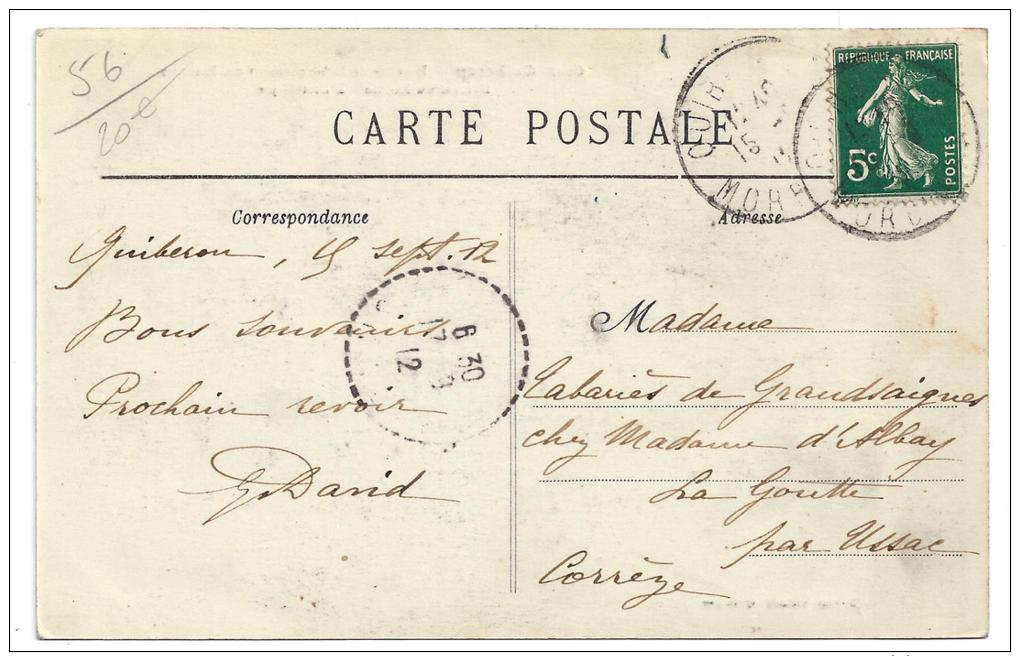 56
20€
CARTE POSTALE
RÉPUBLIQUE FRANÇAISE
5c
POSTES
QUIB
15
MORB
Correspondance
Adresse
Quiberon, 15 sept. 12
Bons souvenirs
Prochain revoir
G David
6 30
17 9
12
Madame
Cabariès de Grandsaignes
chez Madame d'Albay
La Goutte
par Ussac
Corrèze